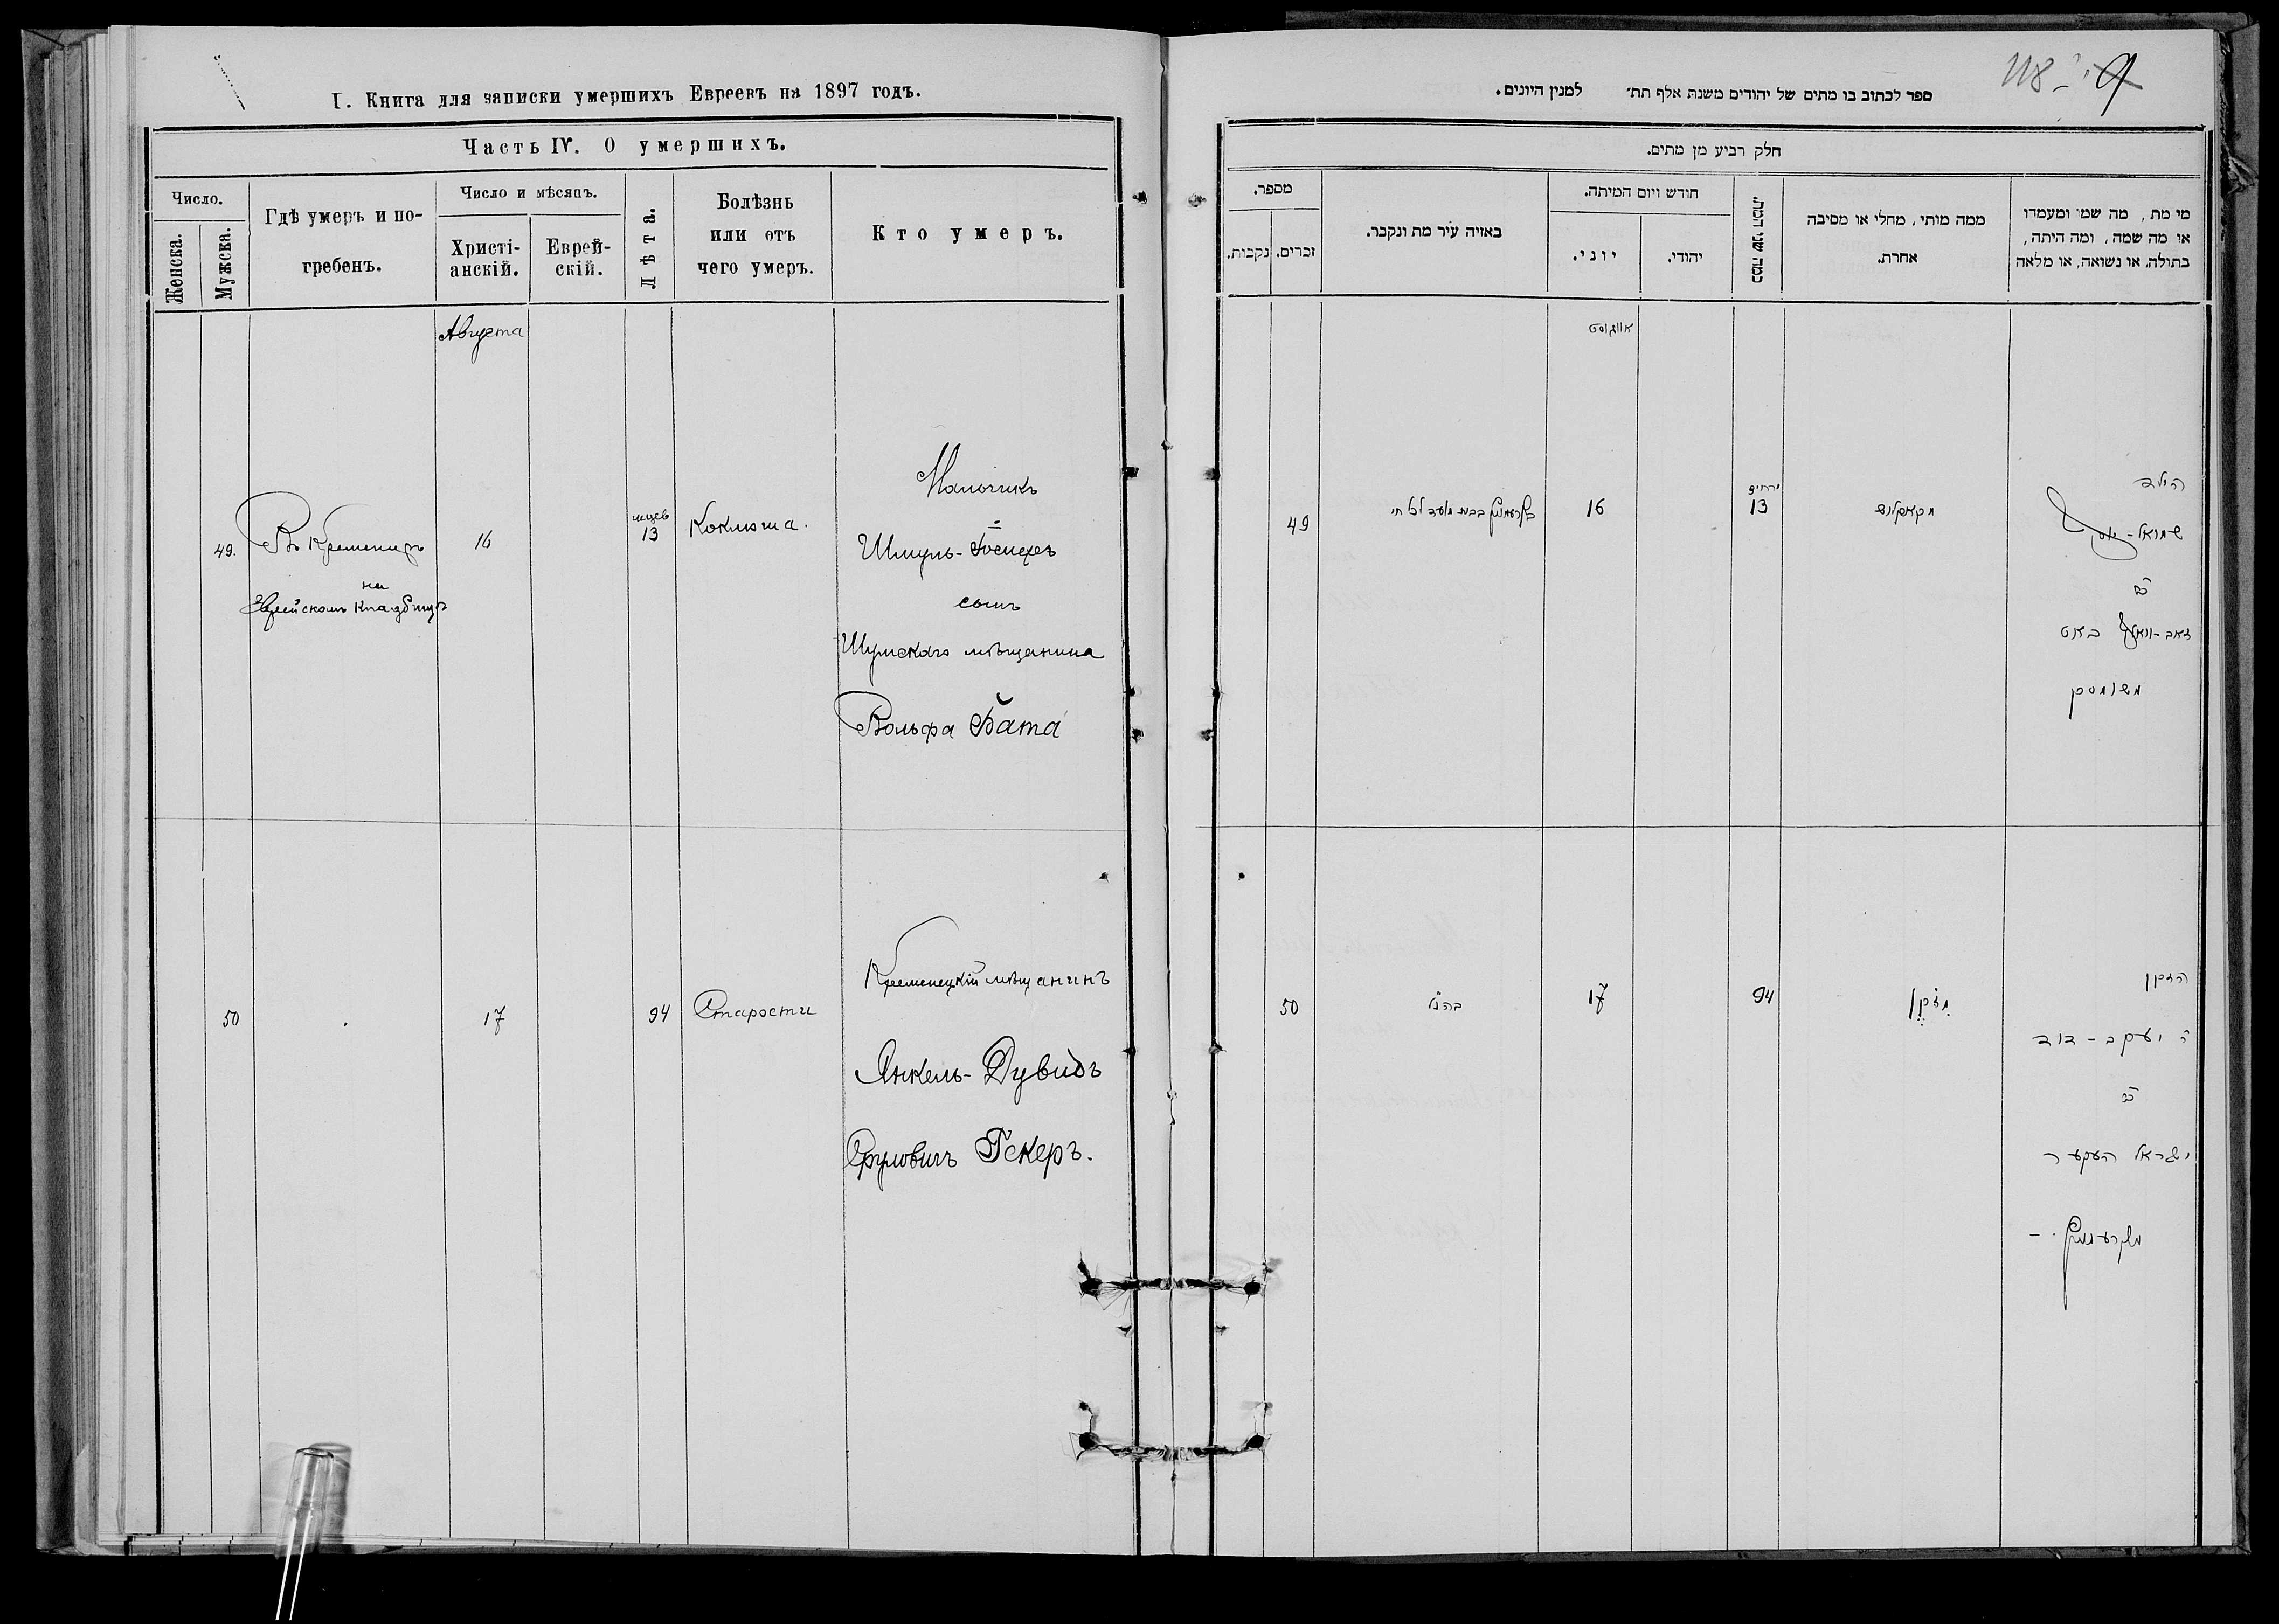 I. Книга для записки умершихъ Евреевъ на 1897 годъ.
Часть IV. О умершихъ.
Число.
Женска.
Мужска.
Гдѣ умеръ и по-
гребенъ.
Число и мѣсяцъ.
Христі-
анскій.
Еврей-
скій.
Лѣта.
Болѣзнь
или отъ
чего умеръ.
Кто умеръ.
Августа
49.
Въ Кременцѣ
на
Еврейскомъ кладбищѣ
16
мцев
13
Коклюша.
Мальчикъ
Шмуль-Іосифъ
сынъ
Шумскаго мѣщанина
Вольфа Бата
50
17
94
Старости
Кременецкій мѣщанинъ
Янкель-Дувидъ
Сруловичъ Гекеръ.
118
ספר לכתוב בו מתים של יהודים משנת אלף תת׳ למנין היונים.
חלק רביע מן מתים.
מספר.
נקבות.
זכרים.
באזיה עיר מת ונקבר.
חודש ויום המיתה.
יוני.
יהודי.
כמה שני המת.
ממה מותי, מחלי או מסיבה
אחרת.
מי מת, מה שמו ומעמדו
או מה שמה, ומה היתה,
בתולה, או נשואה, או מלאה
אווגוסט
49
בקרעמניץ בבית מועד לכל חי
16
ירחים
13
מקאקלוש
הילד
שמואל-יוסף
ב״ר
זאב-וואלף באט
משומסק
50
כה״נל
17
94
מזקן
הזקן
ר׳ יעקב-דוד
ב״ר
ישראל העקער
מקרעמניץ. -